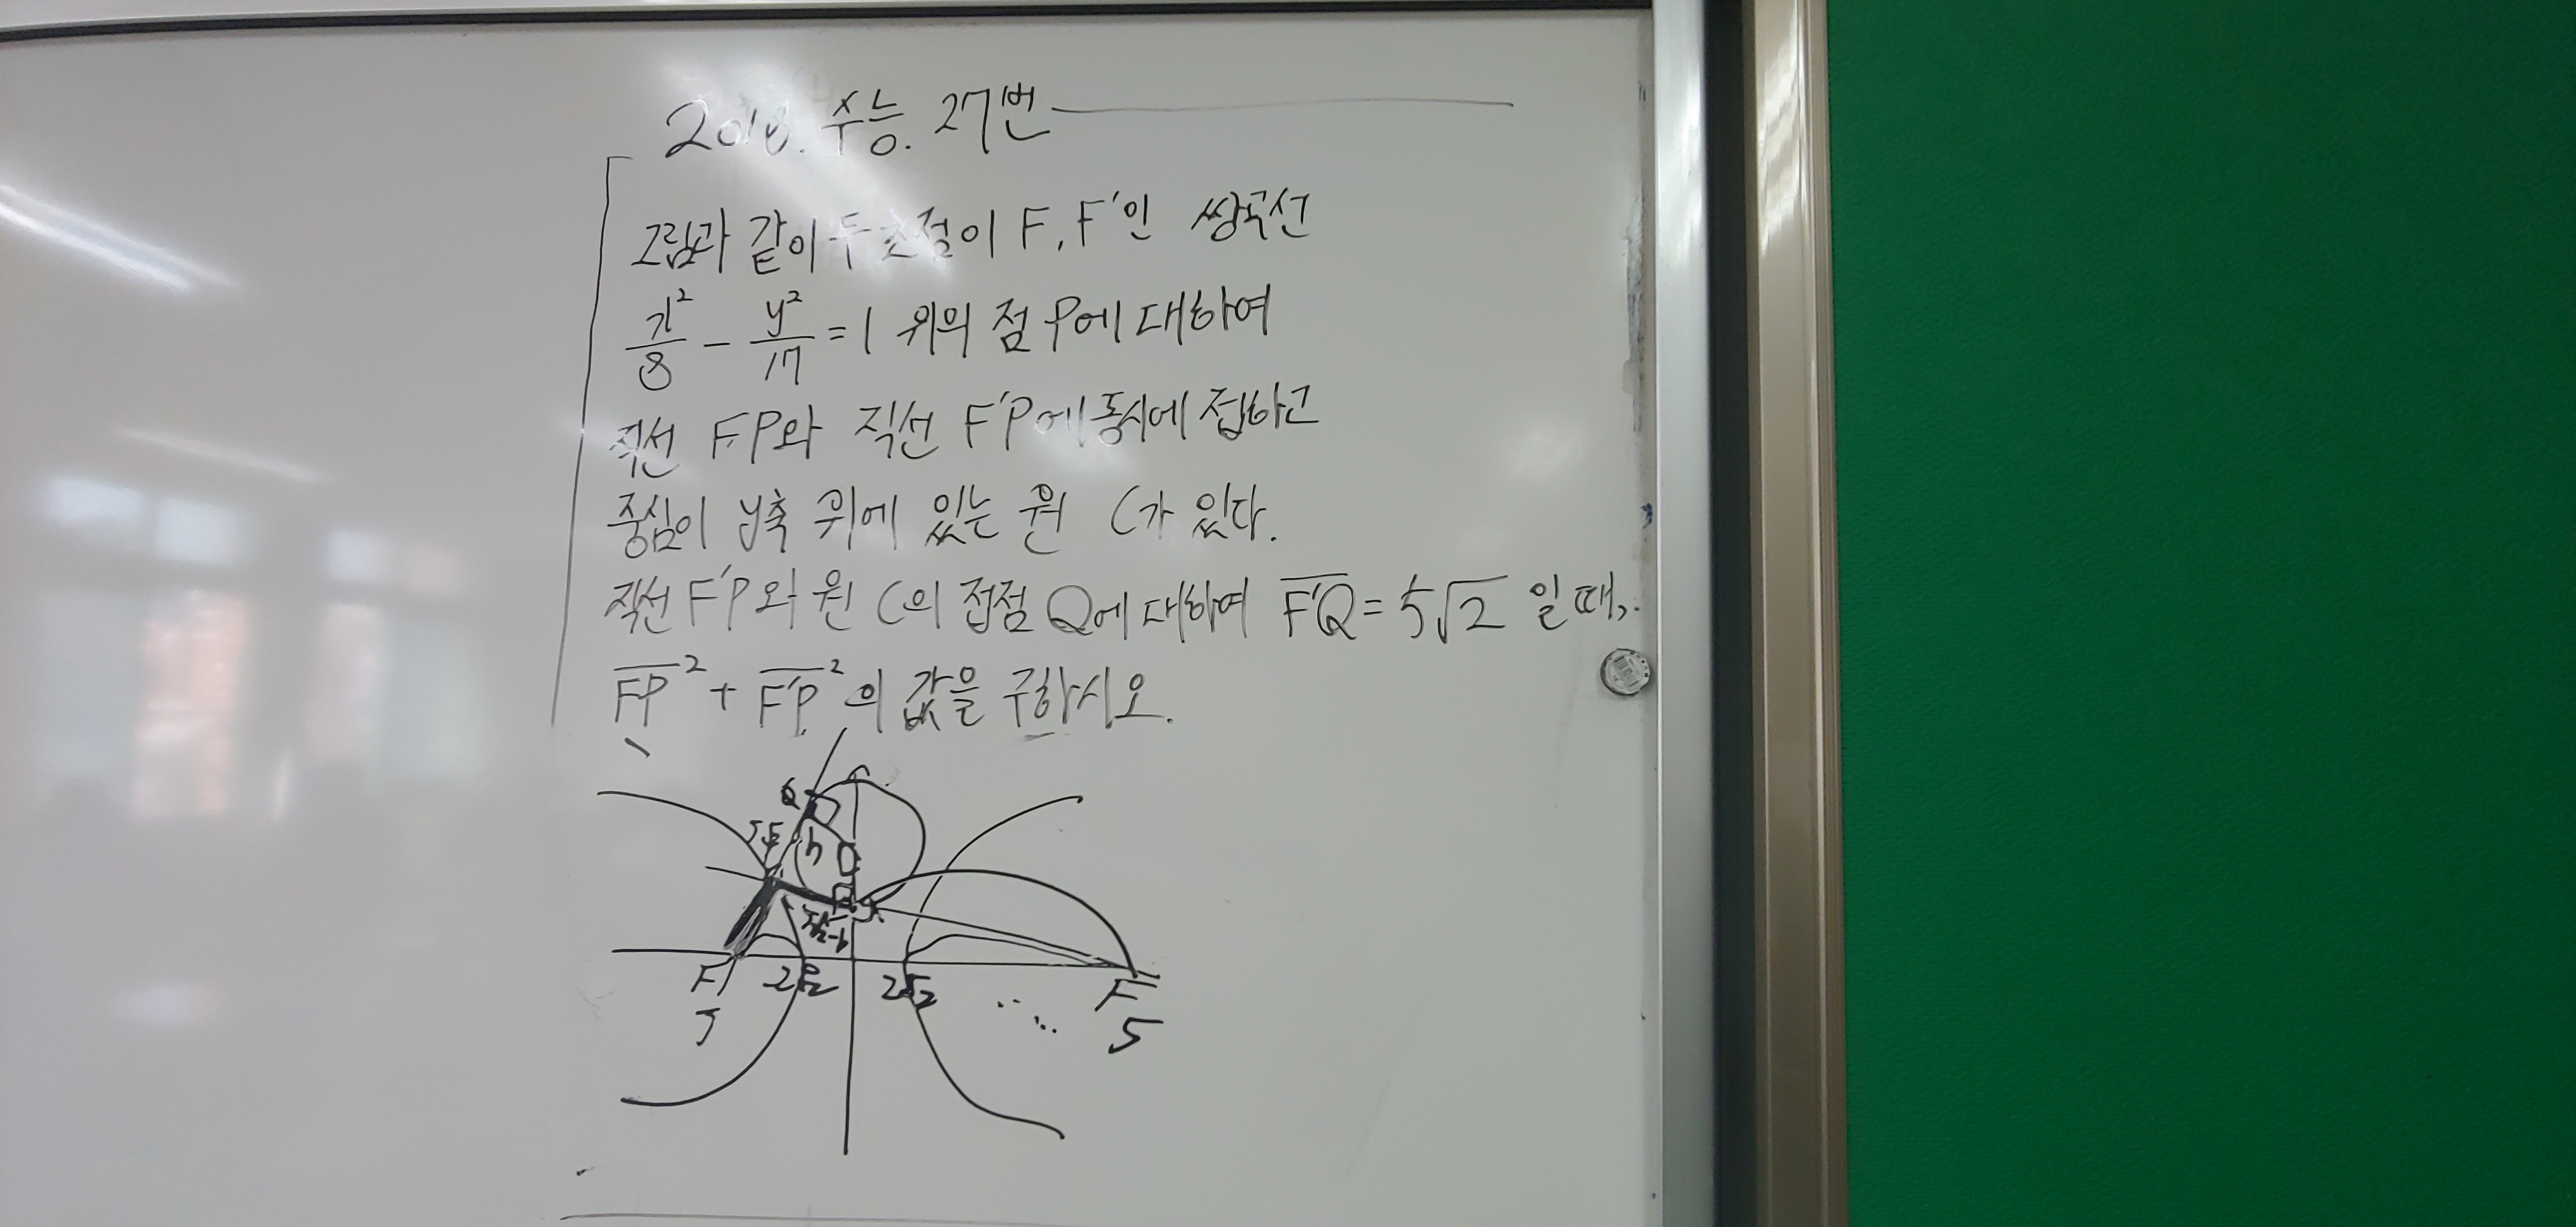 2018. 수능. 27번
그림과 같이 두 초점이 F, F'인 쌍곡선
x²/8 - y²/17 = 1 위의 점 P에 대하여
직선 FP와 직선 F'P에 동시에 접하고
중심이 y축 위에 있는 원 C가 있다.
직선 F'P와 원 C의 접점 Q에 대하여 F'Q = 5√2 일 때,
FP² + F'P² 의 값을 구하시오.
Q
F'
2√2
F
5